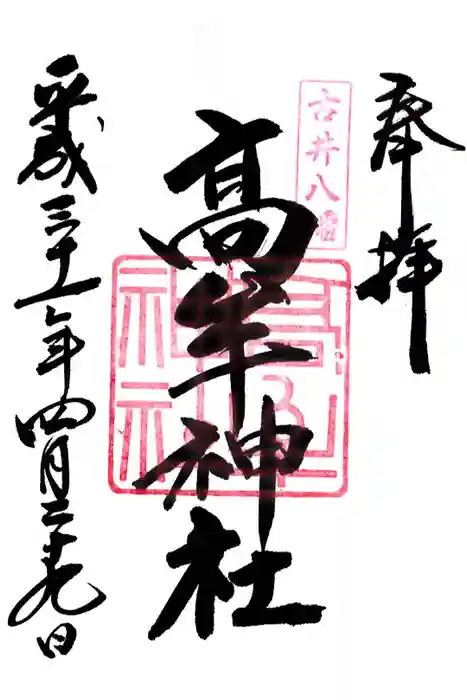 奉拝
古井八幡
高牟神社
高牟神社
平成三十一年四月二十九日